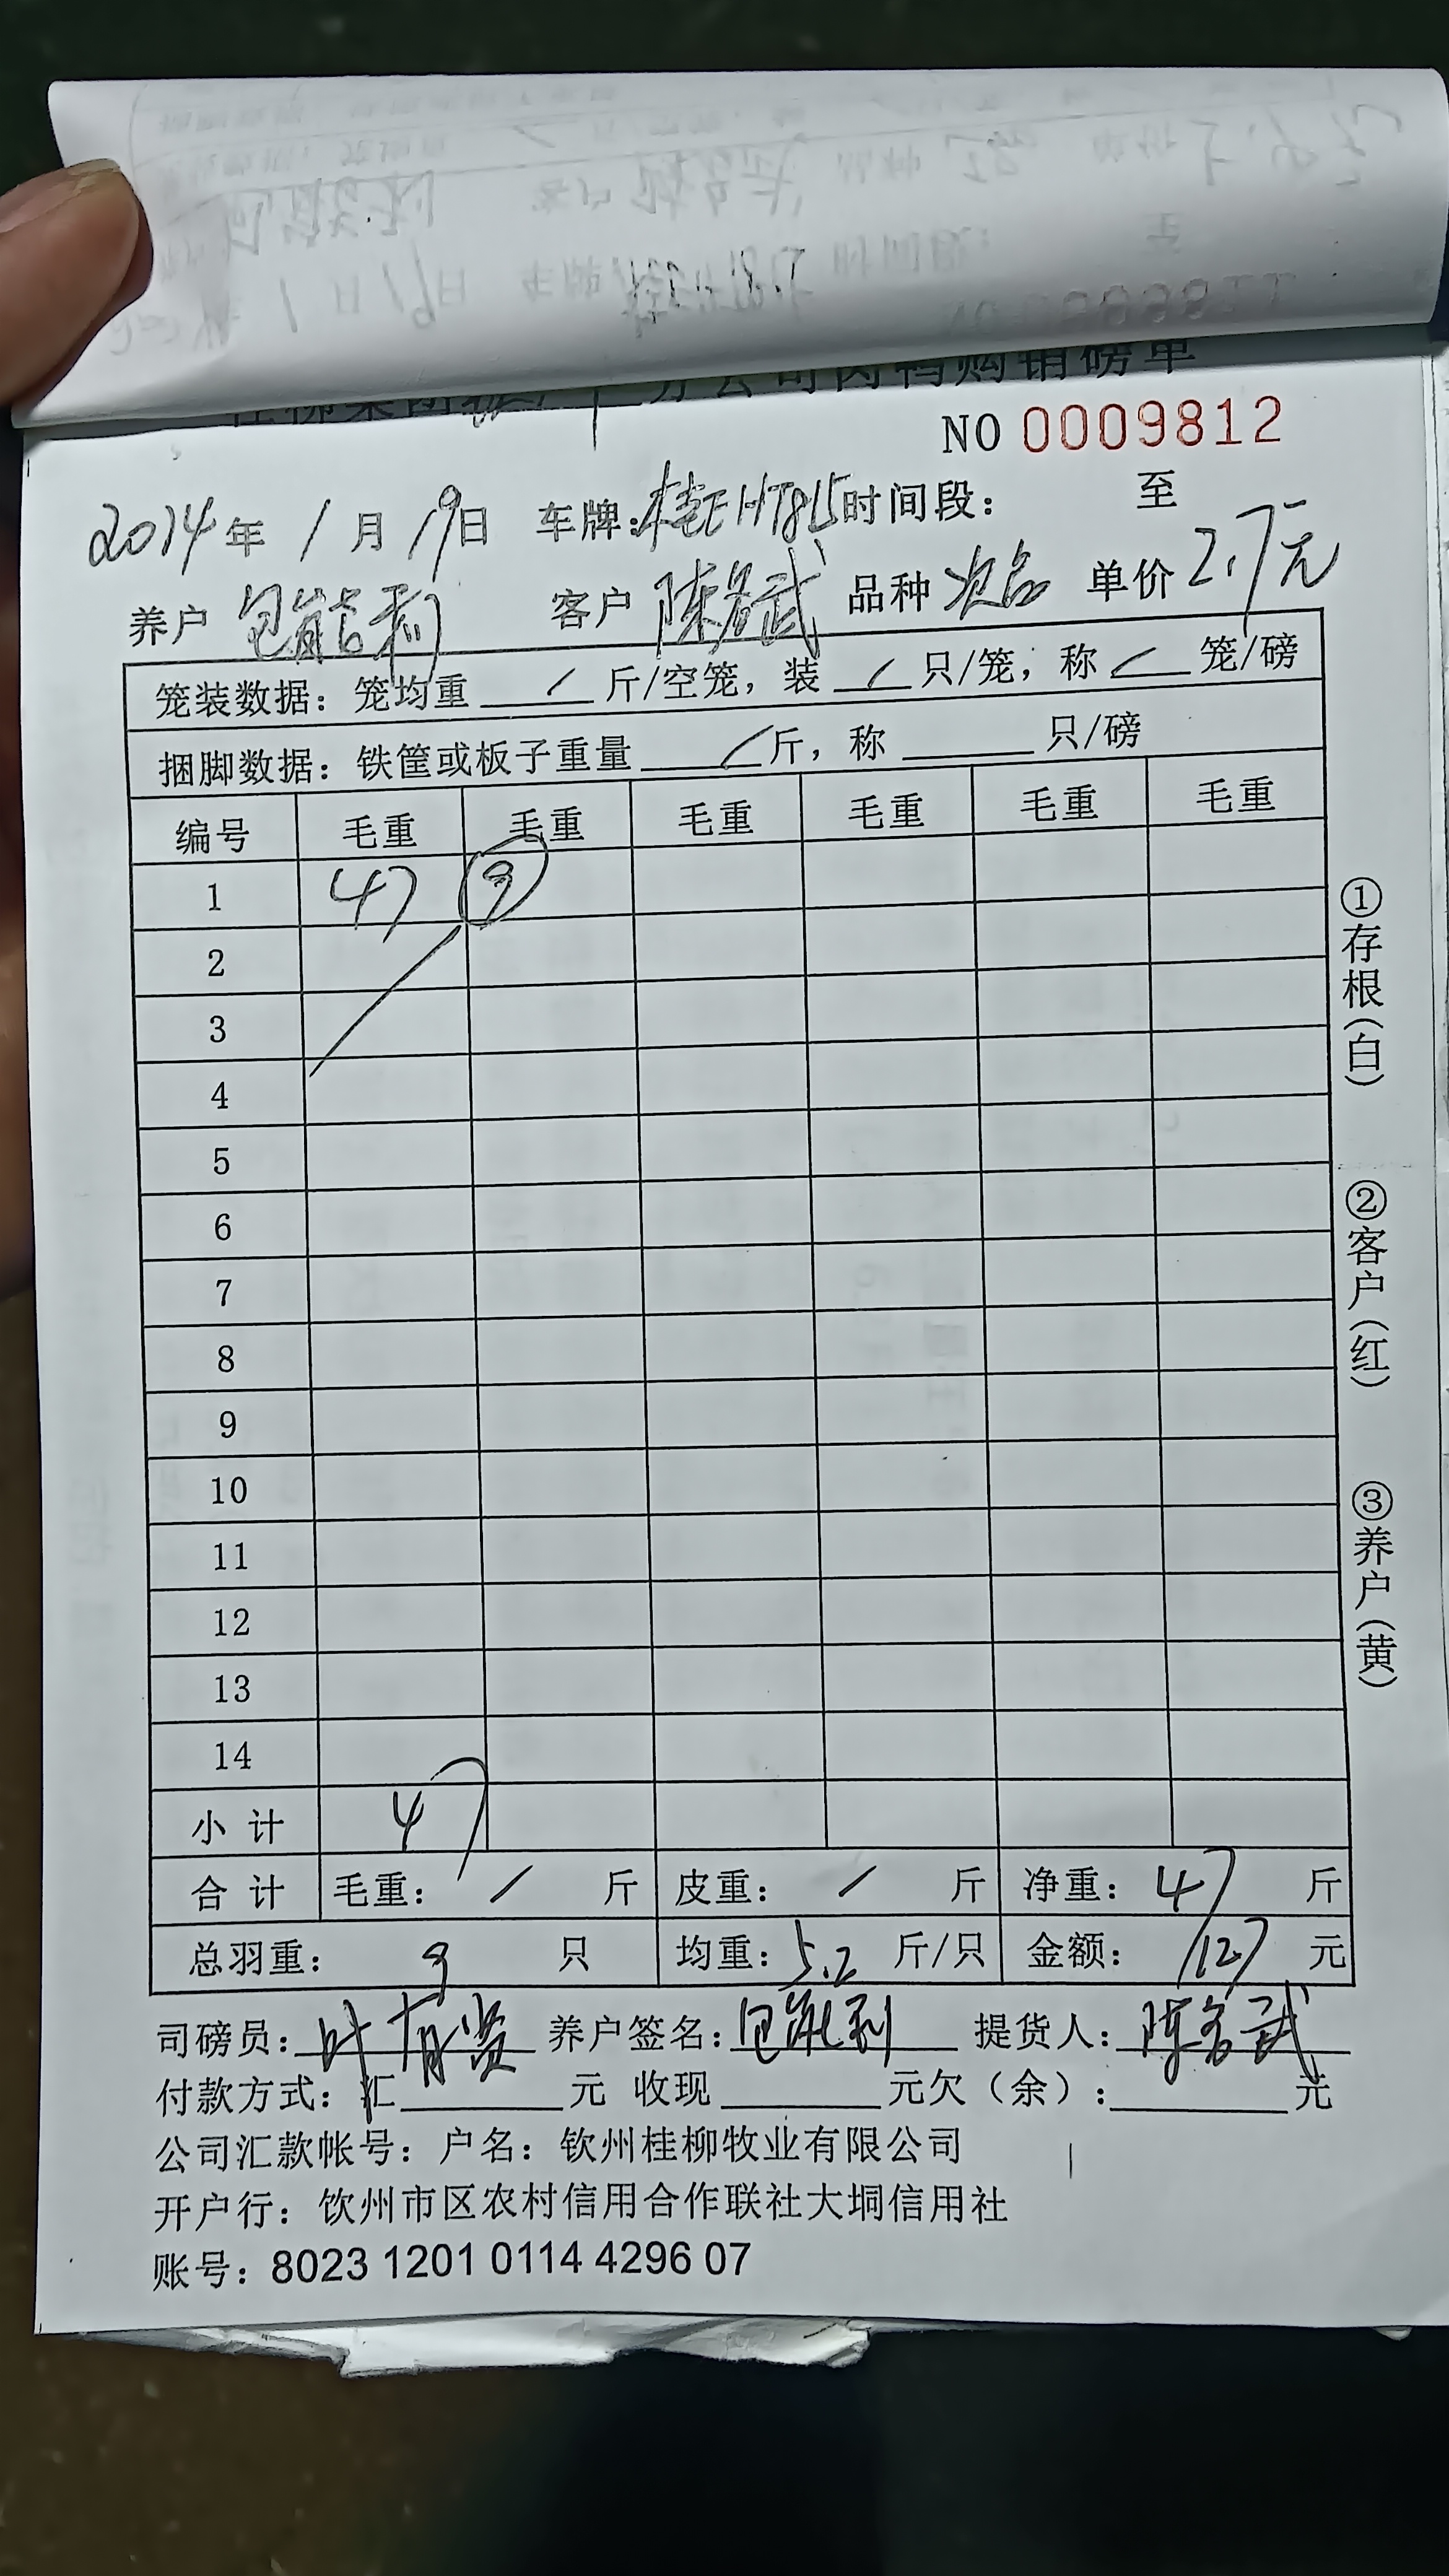 分公司肉鸭购销磅单
NO 0009812
2024年 1月 19日 车牌:桂E HT815 时间段: 至
养户 包能利 客户 陈名武 品种 次品 单价 2.7元
笼装数据: 笼均重 / 斤/空笼, 装 / 只/笼, 称 / 笼/磅
捆脚数据: 铁筐或板子重量 / 斤, 称 只/磅
编号 毛重 毛重 毛重 毛重 毛重 毛重
1 47 9
2
3
4
5
6
7
8
9
10
11
12
13
14
小计 47
合计 毛重: / 斤 皮重: / 斤 净重: 47 斤
总羽重: 9 只 均重: 5.2 斤/只 金额: 127 元
司磅员: 叶有贤 养户签名: 包能利 提货人: 陈名武
付款方式: 汇 元 收现 元欠(余): 元
公司汇款帐号: 户名: 钦州桂柳牧业有限公司
开户行: 钦州市区农村信用合作联社大垌信用社
账号: 8023 1201 0114 4296 07
①存根(白)
②客户(红)
③养户(黄)